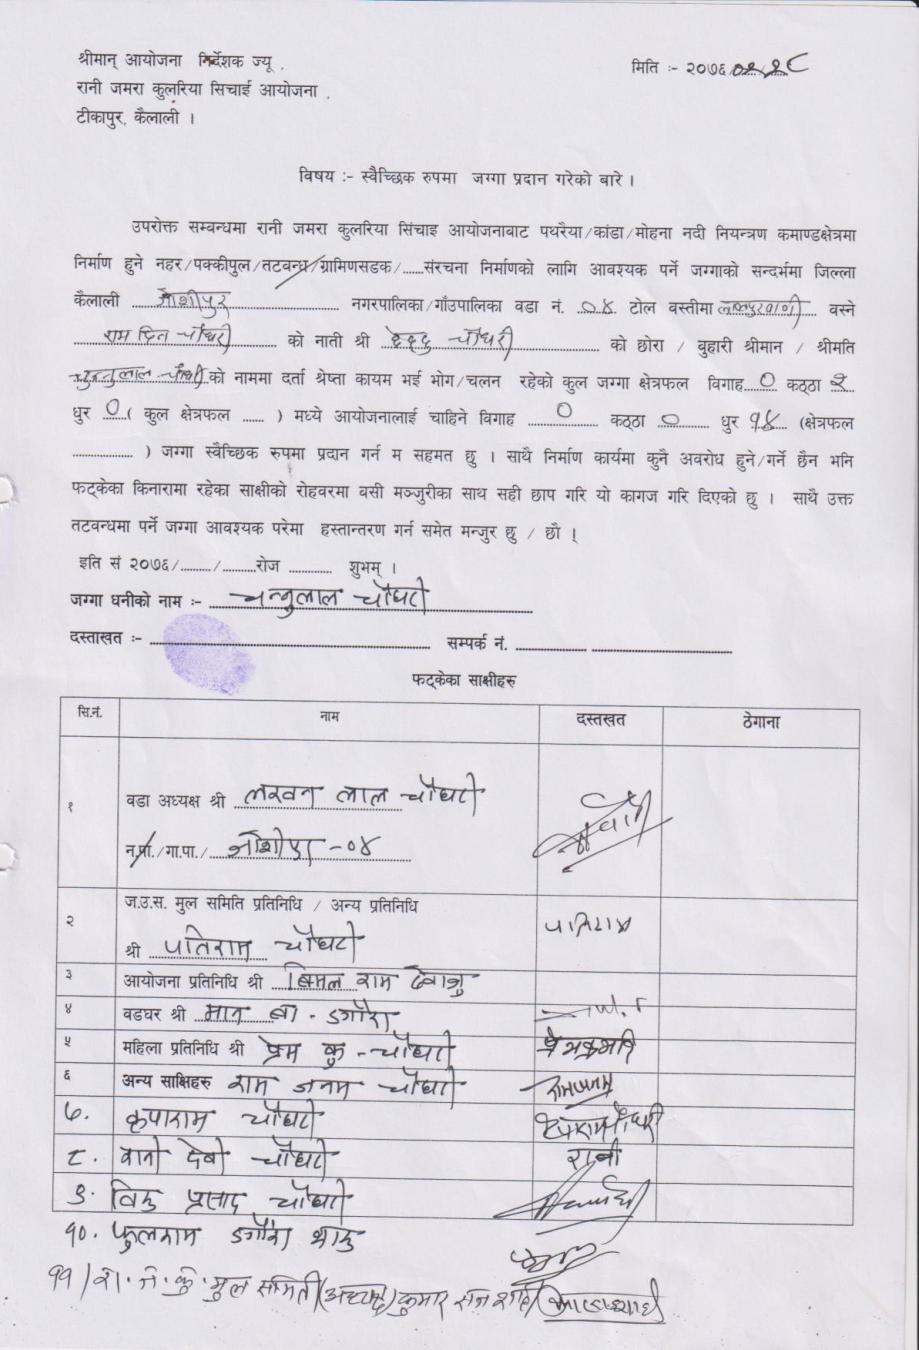 श्रीमान् आयोजना निर्देशक ज्यू ,
मिति :- २०७६
रानी जमरा कुलरिया सिचाई आयोजना ,
टीकापुर, कैलाली ।
विषय :- स्वैच्छिक रुपमा जग्गा प्रदान गरेको बारे ।
उपरोक्त सम्बन्धमा रानी जमरा कुलरिया सिंचाइ आयोजनाबाट पथरैया/कांडा/मोहना नदी नियन्त्रण कमाण्डक्षेत्रमा
निर्माण हुने नहर/पक्कीपुल/तटवन्ध/ग्रामिणसडक/......संरचना निर्माणको लागि आवश्यक पर्ने जग्गाको सन्दर्भमा जिल्ला
कैलाली जोशीपुर नगरपालिका/गाँउपालिका वडा नं. ०४ टोल वस्तीमा वस्ने
राम दिन चौधरी को नाती श्री चौधरी को छोरा / बुहारी श्रीमान / श्रीमति
चौधरी को नाममा दर्ता श्रेष्ता कायम भई भोग/चलन रहेको कुल जग्गा क्षेत्रफल विगाह ० कठ्ठा २
धुर ० ( कुल क्षेत्रफल ...... ) मध्ये आयोजनालाई चाहिने विगाह ० कठ्ठा ० धुर १४ (क्षेत्रफल
.................. ) जग्गा स्वैच्छिक रुपमा प्रदान गर्न म सहमत छु । साथै निर्माण कार्यमा कुनै अवरोध हुने/गर्ने छैन भनि
फट्केका किनारामा रहेका साक्षीको रोहवरमा वसी मञ्जुरीका साथ सही छाप गरि यो कागज गरि दिएको छु । साथै उक्त
तटवन्धमा पर्ने जग्गा आवश्यक परेमा हस्तान्तरण गर्न समेत मन्जुर छु / छौ ।
इति सं २०७६/........./.........रोज ............ शुभम् ।
जग्गा धनीको नाम :- चौधरी
दस्ताखत :- सम्पर्क नं.
फट्केका साक्षीहरु
सि.नं. नाम दस्तखत ठेगाना
१ वडा अध्यक्ष श्री लखन लाल चौधरी
न.पा./गा.पा./ जोशीपुर -०४
२ ज.उ.स. मुल समिति प्रतिनिधि / अन्य प्रतिनिधि
श्री पतिराम चौधरी पतिराम
३ आयोजना प्रतिनिधि श्री बिमल राम
४ वडघर श्री मान ब. डगौरा
५ महिला प्रतिनिधि श्री प्रेम कु - चौधरी
६ अन्य साक्षिहरु राम जनम चौधरी रामजनम
७. कृपाराम चौधरी
८. देवी चौधरी
९. प्रसाद चौधरी
१०. फुलराम डगौरा थारु
११/ रा. ज. कु. मुल समिती (अध्यक्ष) कुमार